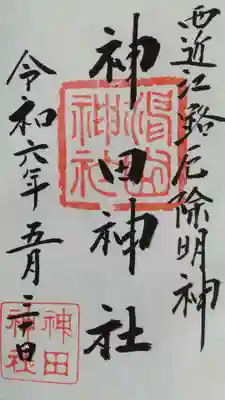 西近江路厄除明神
神田神社
令和六年五月二十日
神田
神社